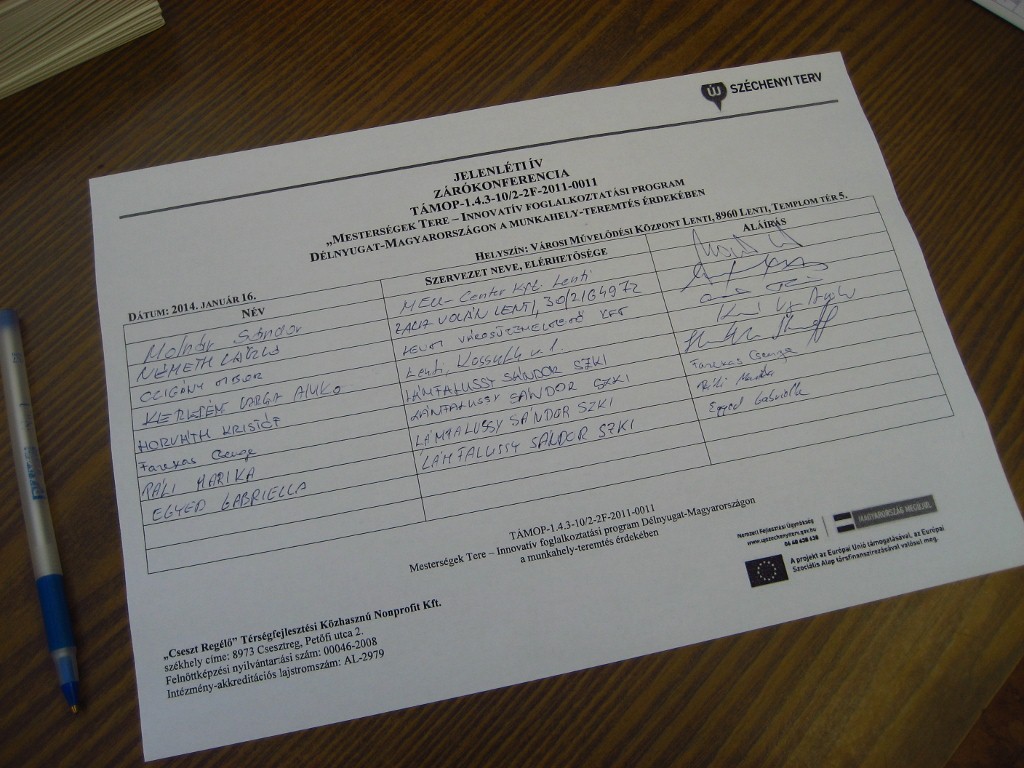 ÚJ SZÉCHENYI TERV
JELENLÉTI ÍV
ZÁRÓKONFERENCIA
TÁMOP-1.4.3-10/2-2F-2011-0011
„MESTERSÉGEK TERE – INNOVATÍV FOGLALKOZTATÁSI PROGRAM
DÉLNYUGAT-MAGYARORSZÁGON A MUNKAHELY-TEREMTÉS ÉRDEKÉBEN
DÁTUM: 2014. JANUÁR 16. HELYSZÍN: VÁROSI MŰVELŐDÉSI KÖZPONT LENTI, 8960 LENTI, TEMPLOM TÉR 5.
NÉV SZERVEZET NEVE, ELÉRHETŐSÉGE ALÁÍRÁS
Molnár Sándor Center Kft. Lenti
NÉMETH LÁSZLÓ ZALA VOLÁN LENTI, 30/2164972
CZIGÁNY TIBOR LENTI VÁROSÜZEMELTETŐ KFT
VARGA Lenti, Kossuth u. 1.
HORVÁTH KRISTÓF LÁMFALUSSY SÁNDOR SZKI
Farkas Csenge LÁMFALUSSY SÁNDOR SZKI Farkas Csenge
PÁLI MARIKA LÁMFALUSSY SÁNDOR SZKI Páli Marika
EGYED GABRIELLA LÁMFALUSSY SÁNDOR SZKI Egyed Gabriella
TÁMOP-1.4.3-10/2-2F-2011-0011
Mesterségek Tere – Innovatív foglalkoztatási program Délnyugat-Magyarországon
a munkahely-teremtés érdekében
Nemzeti Fejlesztési Ügynökség
www.ujszechenyiterv.gov.hu
06 40 638 638
MAGYARORSZÁG MEGÚJUL
A projekt az Európai Unió támogatásával, az Európai
Szociális Alap társfinanszírozásával valósul meg.
„Cseszt Regélő” Térségfejlesztési Közhasznú Nonprofit Kft.
székhely címe: 8973 Csesztreg, Petőfi utca 2.
Felnőttképzési nyilvántartási szám: 00046-2008
Intézmény-akkreditációs lajstromszám: AL-2979